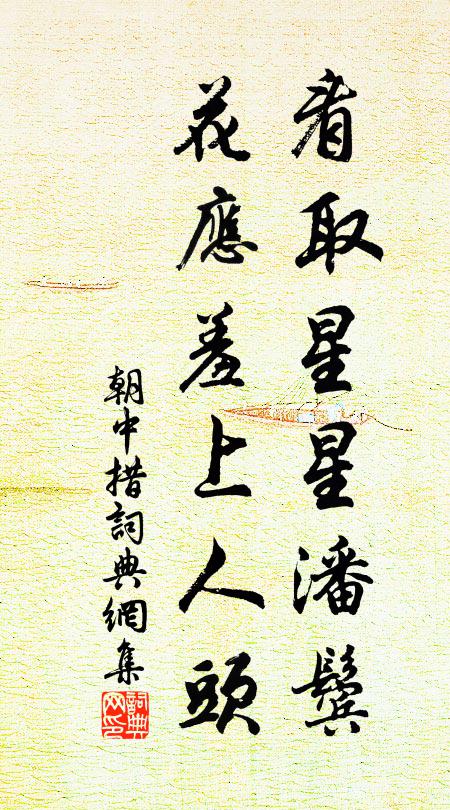 看取星星潘鬢
花應羞上人頭
朝中措詞典網集
詞典网印